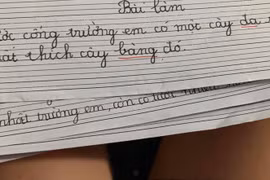 Bài làm
cổng trường em có một cây da
thích cây bàng đó.
nhất trường em, còn có